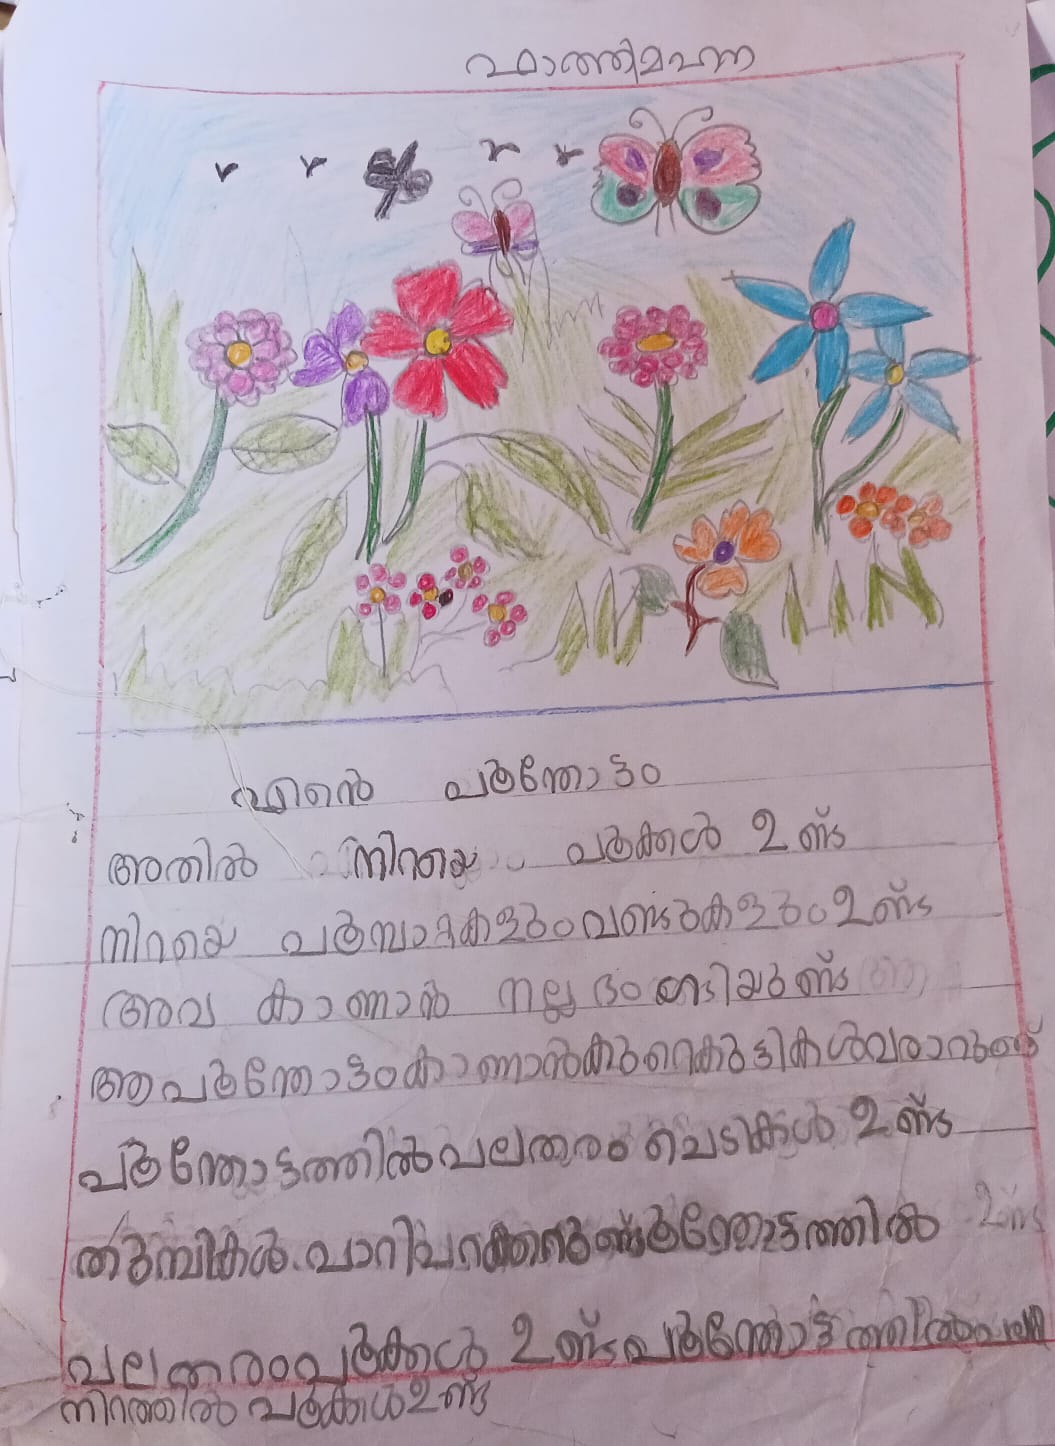 ഫാത്തിമ ഹന്ന
എന്റെ പൂന്തോട്ടം
അതിൽ നിറയെ പൂക്കൾ ഉണ്ട്
നിറയെ പൂമ്പാറ്റകളും വണ്ടുകളും ഉണ്ട്
അവ കാണാൻ നല്ല ഭംഗിയുണ്ട്
ആ പൂന്തോട്ടം കാണാൻ കുറെ കുട്ടികൾ വരാറുണ്ട്
പൂന്തോട്ടത്തിൽ പലതരം ചെടികൾ ഉണ്ട്
തുമ്പികൾ പാറിപറക്കുന്നുണ്ട് പൂന്തോട്ടത്തിൽ
പലതരം പൂക്കൾ ഉണ്ട് പൂന്തോട്ടത്തിൽ പല
നിറത്തിൽ പൂക്കൾ ഉണ്ട്